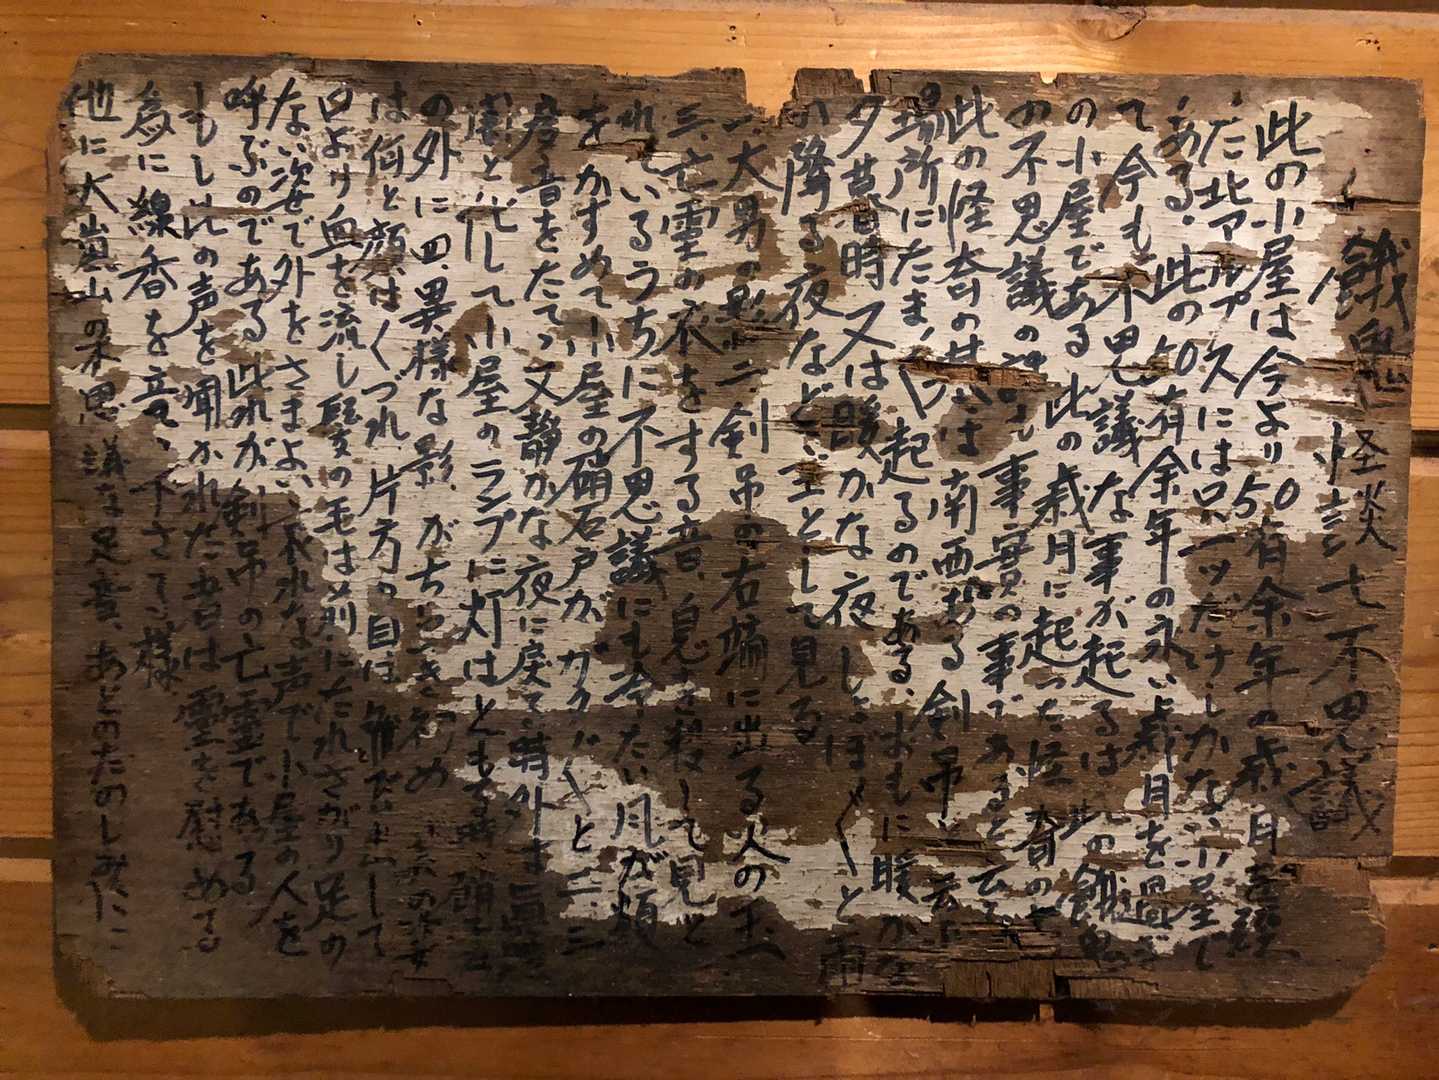 餓鬼 怪談 七不思議
此の小屋は今より50有余年の歳月を
た北アルプスには只一ツだけしかない小屋で
ある、此の50有余年の永い歳月を過
て今も不思議な事が起るは此の餓鬼
の小屋である此の歳月に起った怪奇の
の不思議の 事実の事であると云
此の怪奇の は南西 る剣吊と云
場所にたま〱起るのである、おもに暖かな
夕暮時又は暖かな夜しよぼ〱と雨
が降る夜など 主として見る
一、大男の影 二、剣吊の右端に出る人の玉、
三、亡霊の衣をする音、息を殺して見と
れているうちに不思議にも冷たい風が頬
をかすめて小屋の硝石戸がガタ〱と二、三
度音をたてゝ又静かな夜に戻て
と化して小屋のランプに灯はともる時
の外に四、異様な影、がちらつき初め その姿
は何と顔はくづれ片方の目は 出して
口より血を流し髪の毛は前にたれさがり足の
ない姿で外をさまよい哀れな声で小屋の人を
呼ぶのである此れが剣吊の亡霊である
もし此の声を聞かれた者は霊を慰める
為に線香を立て、下さてご様
他に の不思議な足音、あとのたのしみに